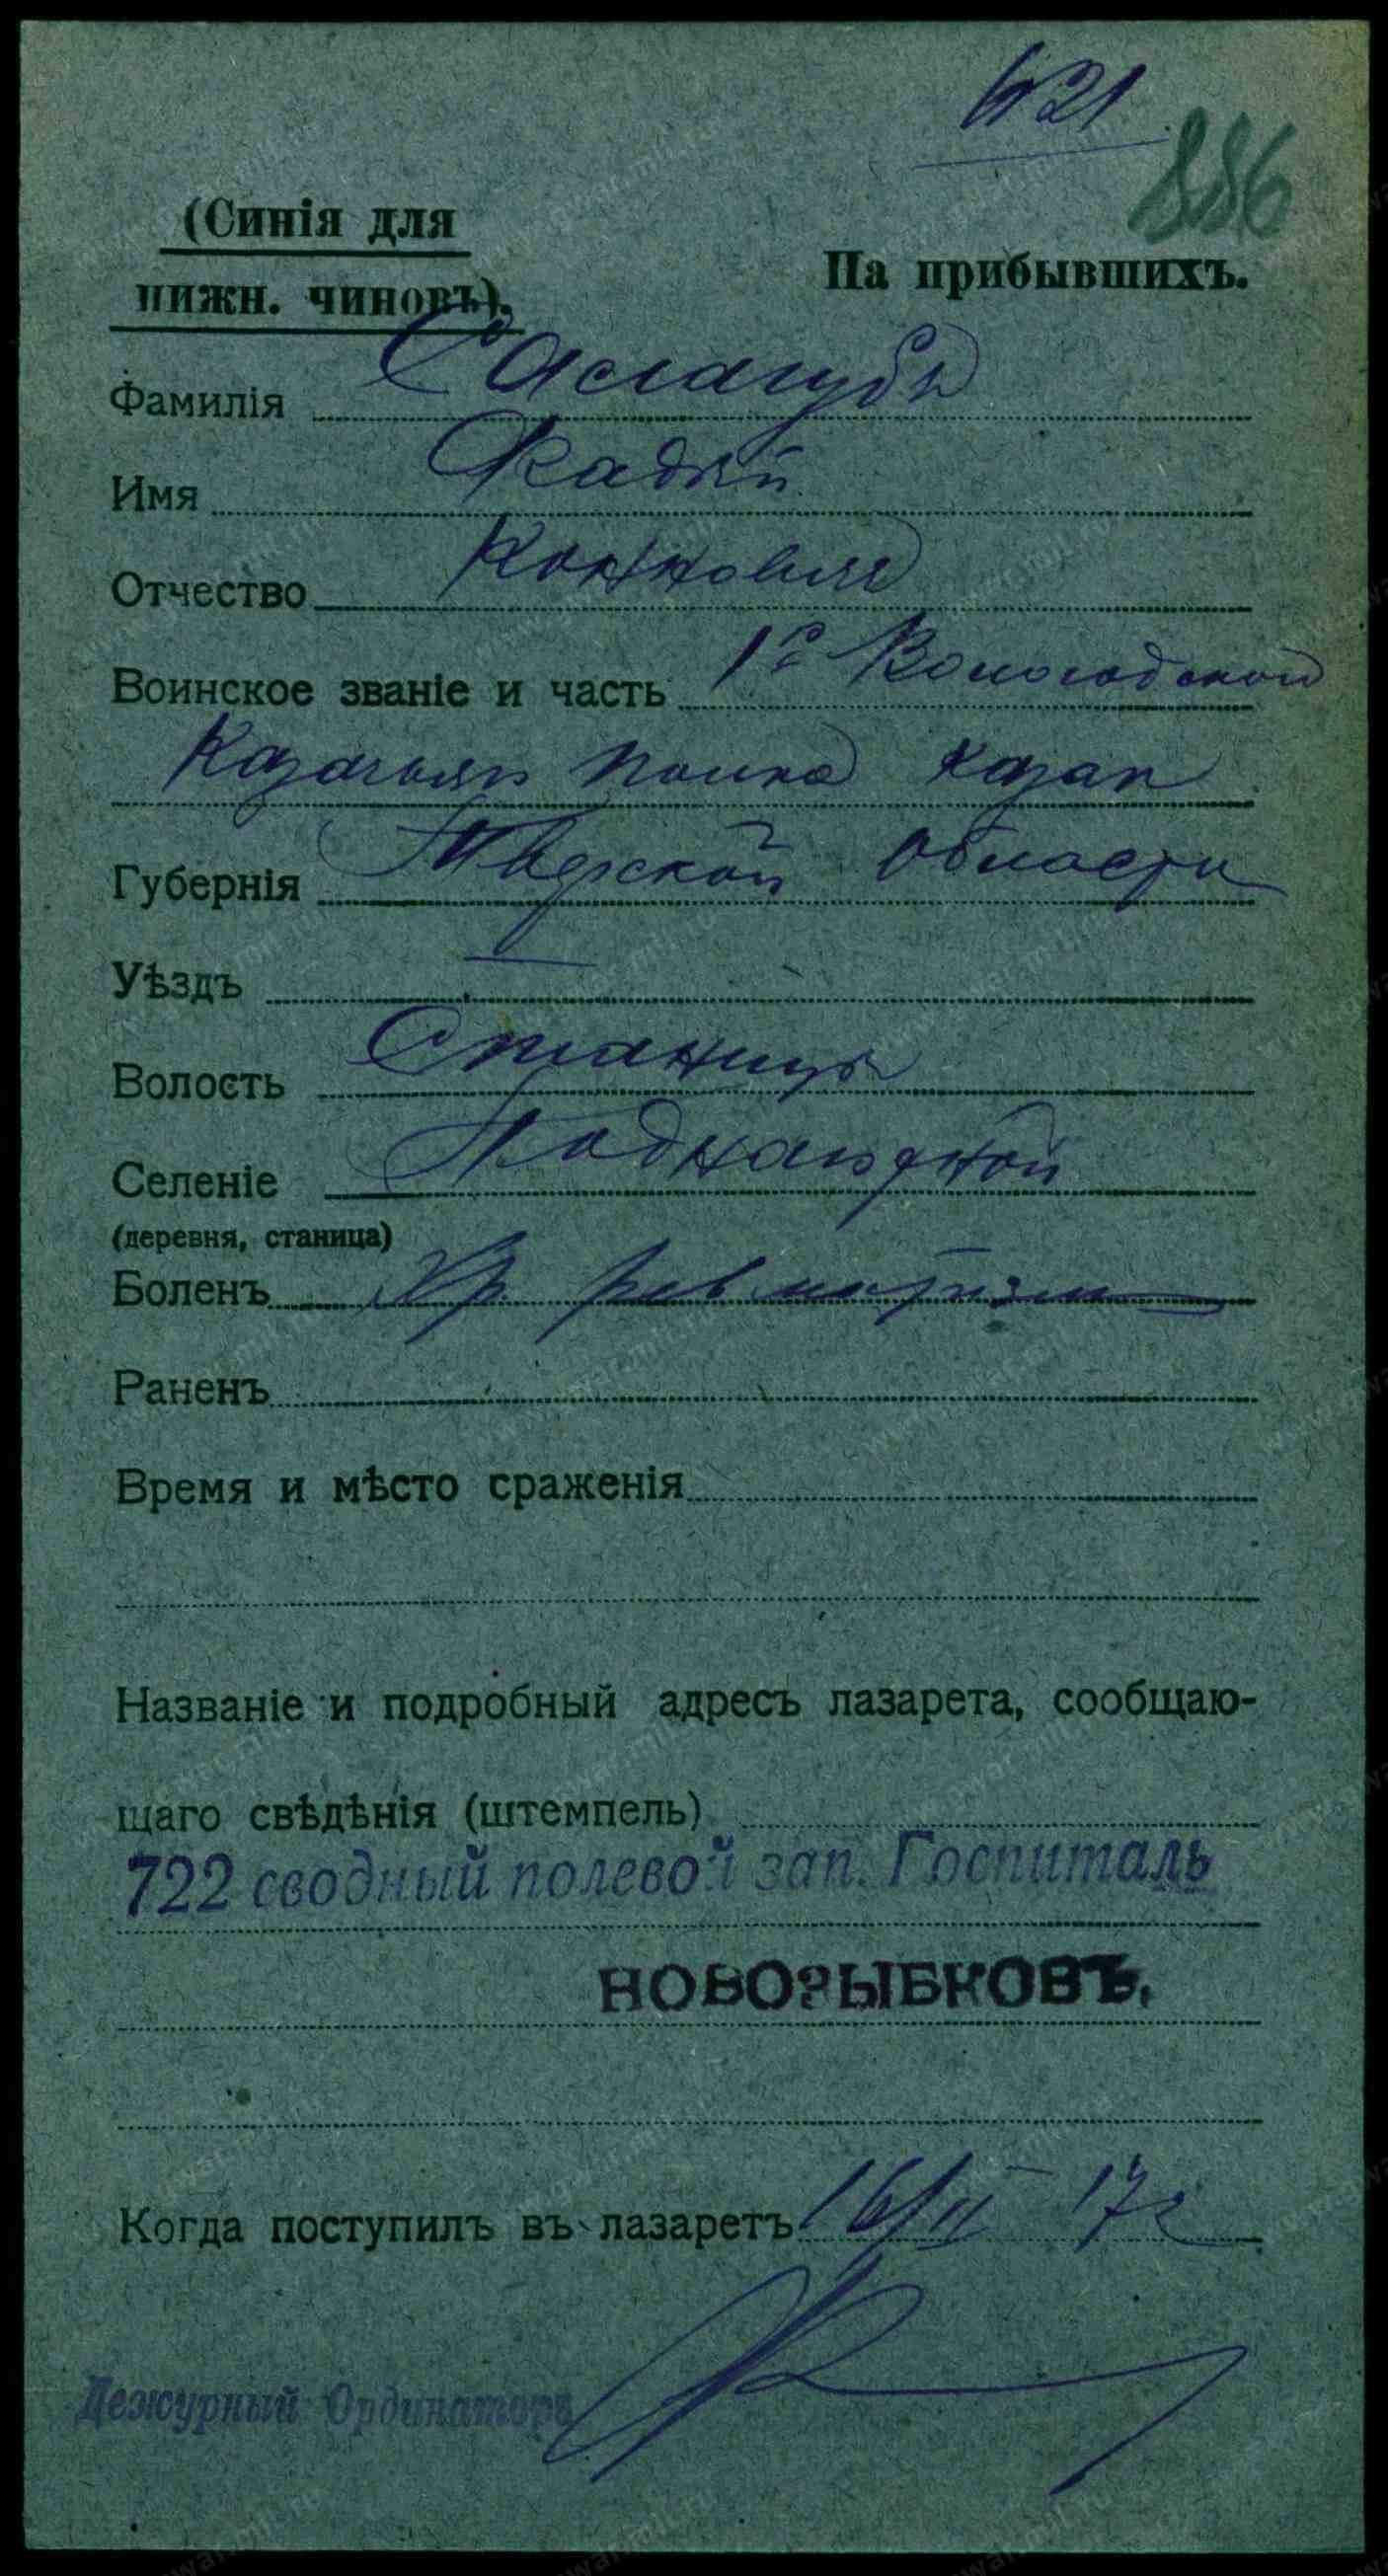 421
886
(Синія для
нижн. чиновъ).
На прибывшихъ.
Фамилія
Имя Фадѣй
Отчество
Воинское званіе и часть 1го
Казачьяго полка казак
Губернія Тверской области
Уѣздъ —
Волость Станицы
Селеніе
(деревня, станица)
Боленъ Хр. ревматизм
Раненъ
Время и мѣсто сраженія
Названіе и подробный адресъ лазарета, сообщаю-
щаго свѣдѣнія (штемпель)
722 сводный полевой зап. Госпиталь
НОВОЗЫБКОВЪ.
Когда поступилъ въ лазаретъ 16/II 17 г
Дежурный Ординаторъ